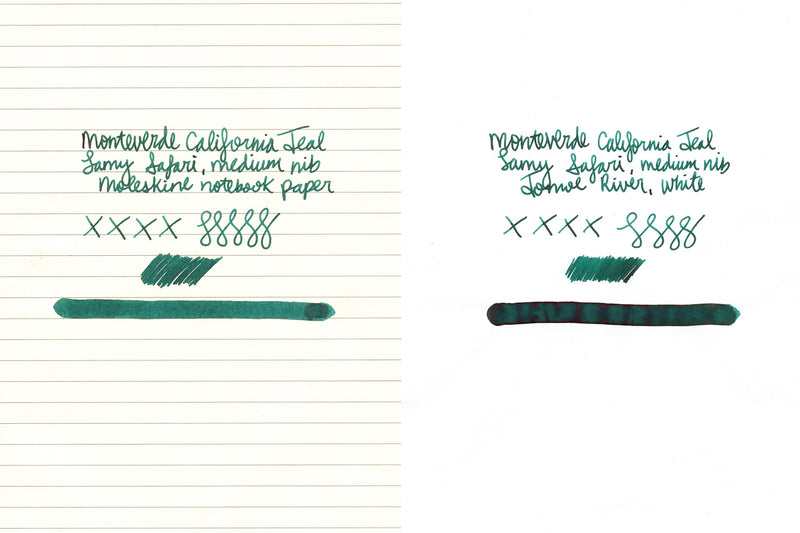 Monteverde California Teal
Lamy Safari, medium nib
Moleskine notebook paper
x x x x
Monteverde California Teal
Lamy Safari, medium nib
Tomoe River, white
x x x x